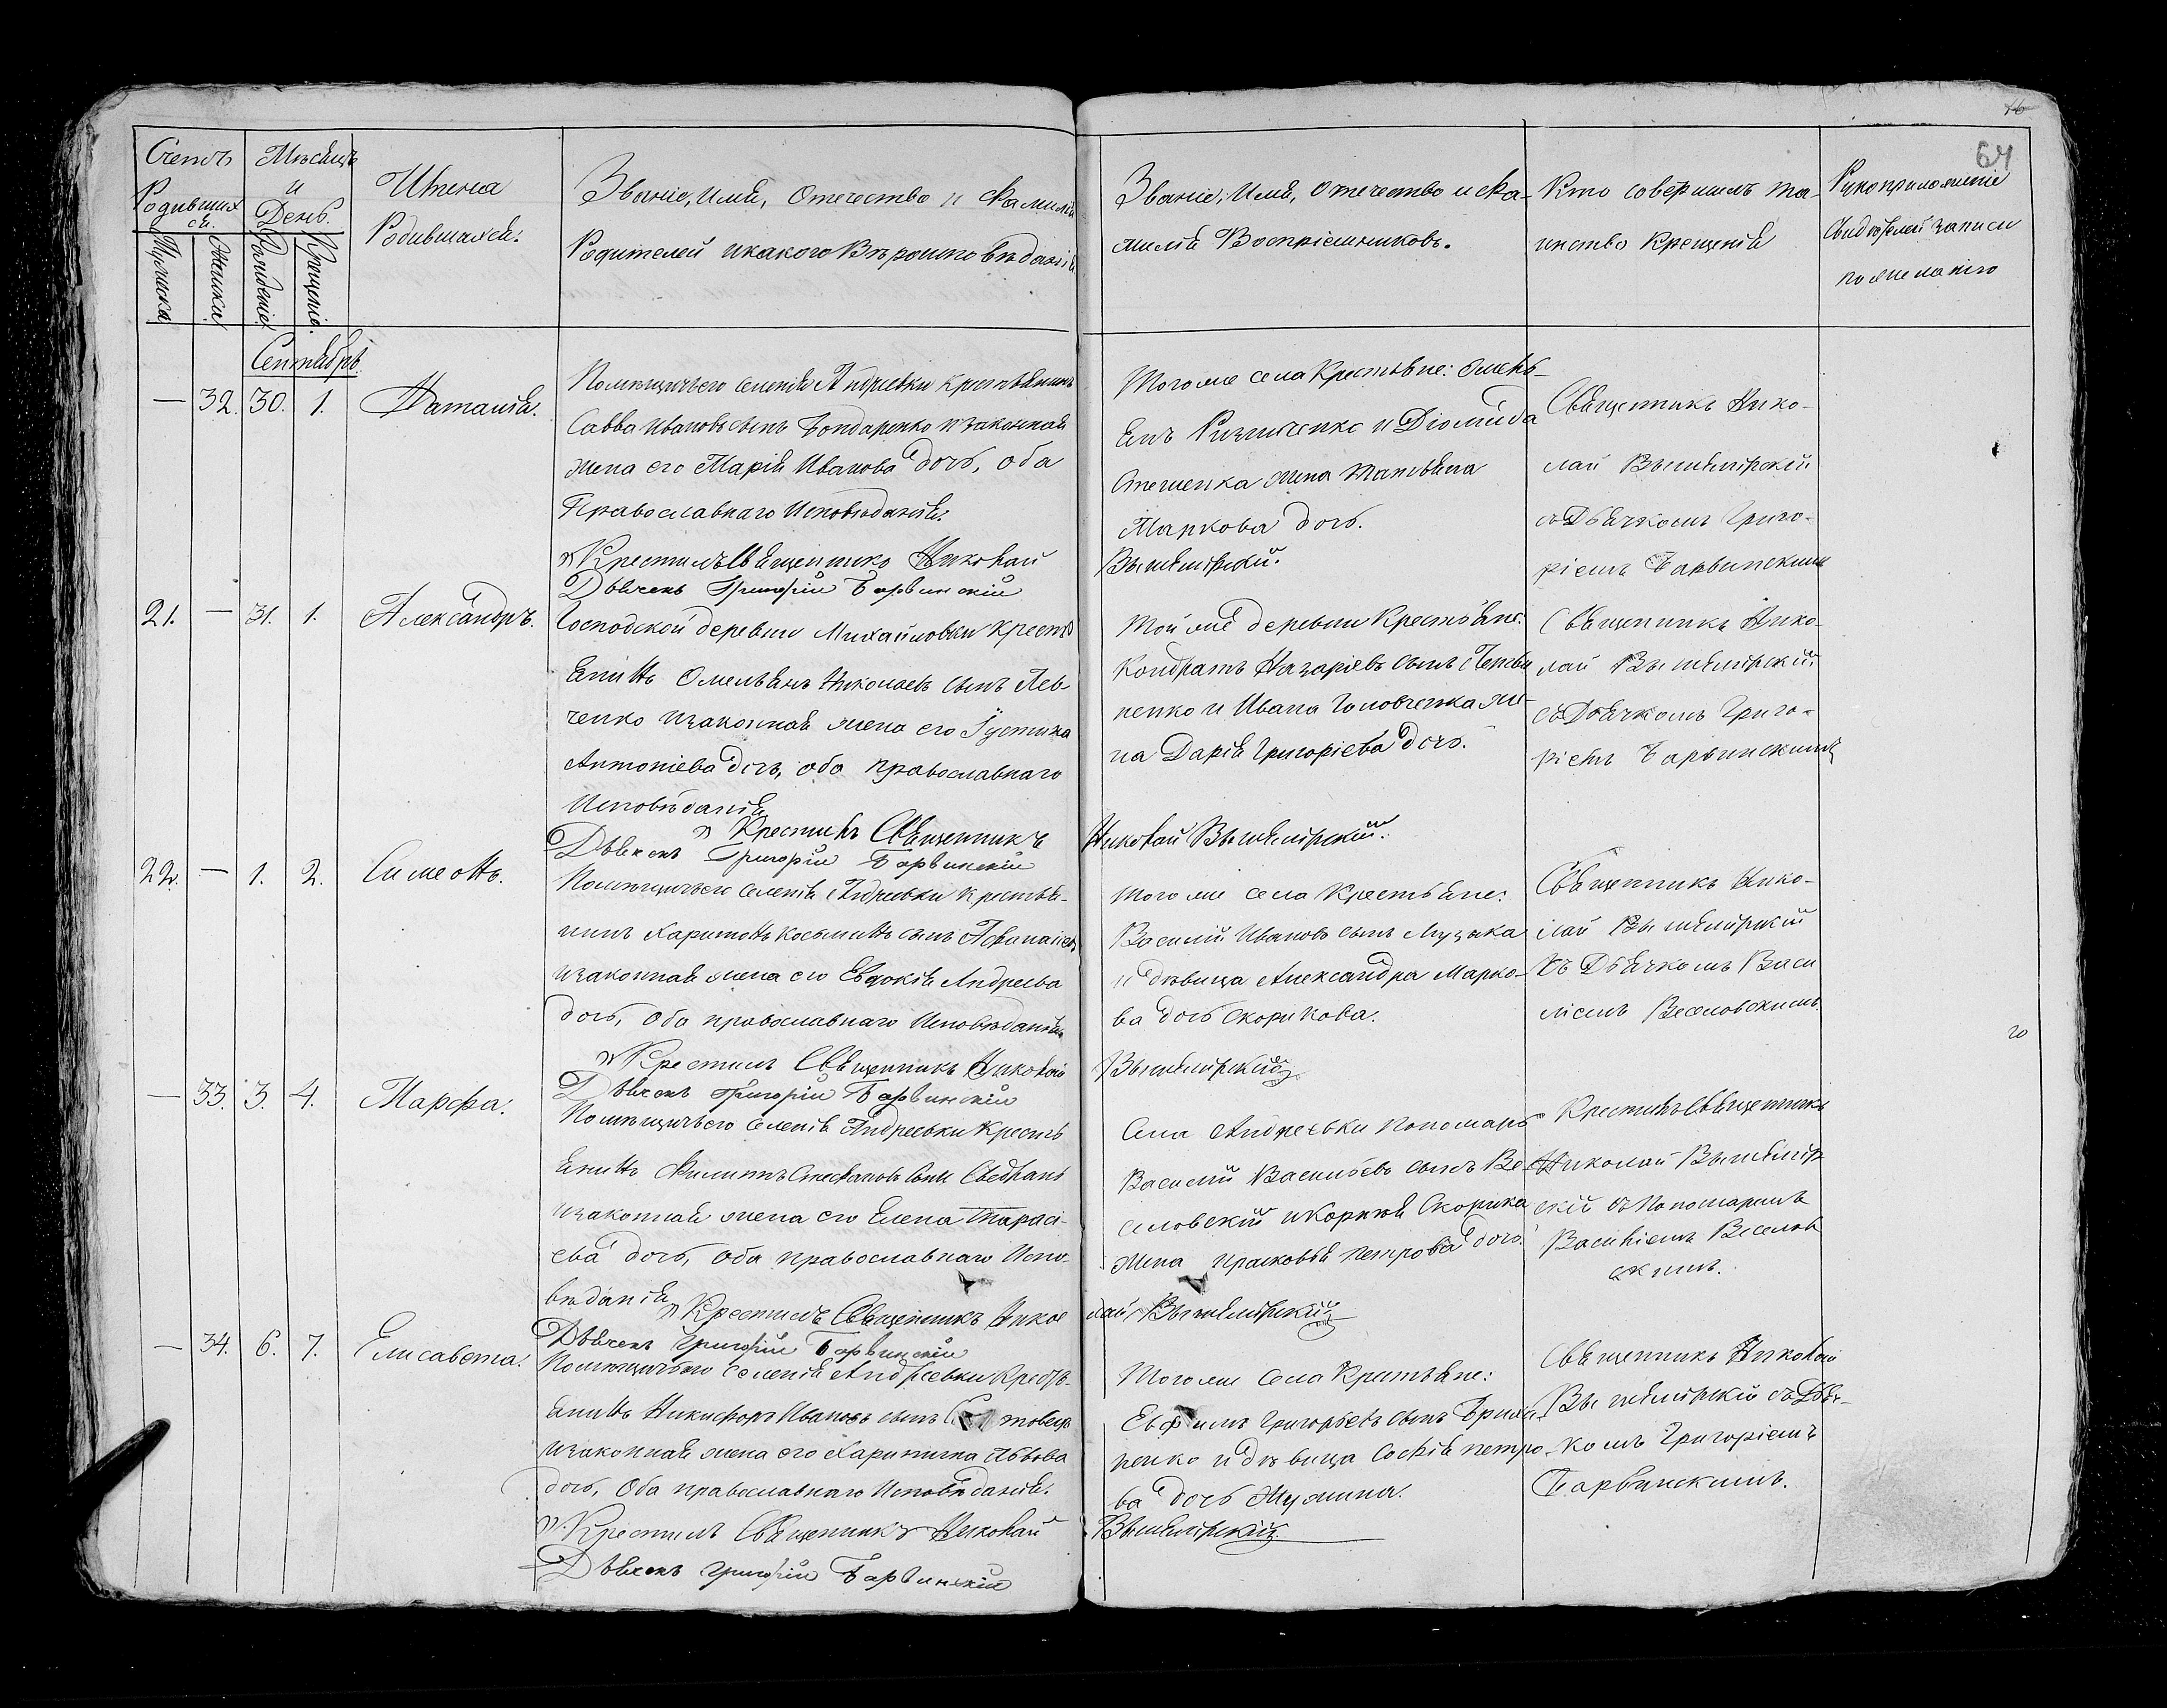 16
64
Счетъ Родившихся.
Мужеска
Женска
Мѣсяцъ и День.
Рожденіе
Крещеніе.
Имена
Родившихся.
Званіе, Имя, Отечество и Фамилія
Родителей и какого Вѣроисповѣданія
Званіе, Имя, Отечество и Фа-
милія Воспріемниковъ.
Кто совершилъ та-
инство Крещенія
Рукоприложеніе
Свидѣтелей записи
по желанію
Сентябрь
— 32. 30. 1. Наталія.
Помѣщичьего селенія Андреевки крестьянинъ
Савва Ивановъ сынъ Бондаренко и законная
жена его Марія Иванова дочь, оба
Православнаго Исповѣданія.
Крестилъ Священникъ Николай
Дьячекъ Григорій Барвинскій
Того же села Крестьяне: Омель-
янъ и Діомида
Стешенка жена Татьяна
Маркова дочь.
Вышемірскій.
Священникъ Нико-
лай Вышемірскій
съ Дьячкомъ Григо-
ріемъ Барвинскимъ
21. — 31. 1. Александръ.
Господской деревни Михайловки крестъ
янинъ Омельянъ Николаевъ сынъ Лев-
ченко и законная жена его Іустина
Антоніева дочь, оба православнаго
Исповѣданія
Крестилъ Священникъ
Дьячекъ Григорій Барвинскій
Той же деревни Крестьяне:
Кондратъ Назаріевъ сынъ
ненко и Ивана Головченка же-
на Дарія Григоріева дочь.
Николай Вышемірскій.
Священникъ Нико-
лай Вышемірскій
съ Дьячкомъ Григо-
ріемъ Барвинскимъ
22. — 1. 2. Симеонъ.
Помѣщичьего селенія Андреевки крестья-
нинъ Харитонъ Косьминъ сынъ
и законная жена его Евдокія Андреева
дочь, Оба православнаго Исповѣданія
Крестилъ Священникъ Николай
Дьячекъ Григорій Барвинскій
Того же села Крестьяне:
Василій Ивановъ сынъ Музыка
и дѣвица Александра Марко-
ва дочь Скорикова.
Вышемірскій
Священникъ Нико-
лай Вышемірскій
съ Дьячкомъ Васи
ліемъ Веселовскимъ
— 33. 3. 4. Марфа.
Помѣщичьего селенія Андреевки Крестъ
янинъ Филиппъ Стефановъ сынъ
и законная жена его Елена Тарасі-
ева дочь, Оба православнаго Испо-
вѣданія
Крестилъ Священникъ Никол
Дьячекъ Григорій Барвинскій
Села Андреевки Пономарь
Василій Васильевъ сынъ Ве-
селовскій и Корнія Скорика
жена Прасковія Петрова дочь.
лай Вышемірскій
Крестилъ Священникъ
Николай Вышемір
скій съ Пономаремъ
Василіемъ Веселов
скимъ.
— 34. 6. 7. Елисавета.
Помѣщичьего селенія Андреевки Крестъ-
янинъ Никифоръ Ивановъ сынъ
и законная жена его Харитина Львова
дочь, Оба православнаго Исповѣданія.
Крестилъ Священникъ Николай
Дьячекъ Григорій Барвинскій
Того же Села Крестьяне:
Ефимъ Григорьевъ сынъ
ненко и дѣвица Софія Петро-
ва дочь
Вышемірскій
Священникъ Николай
Вышемірскій съ Дьяч-
комъ Григоріемъ
Барвинскимъ.